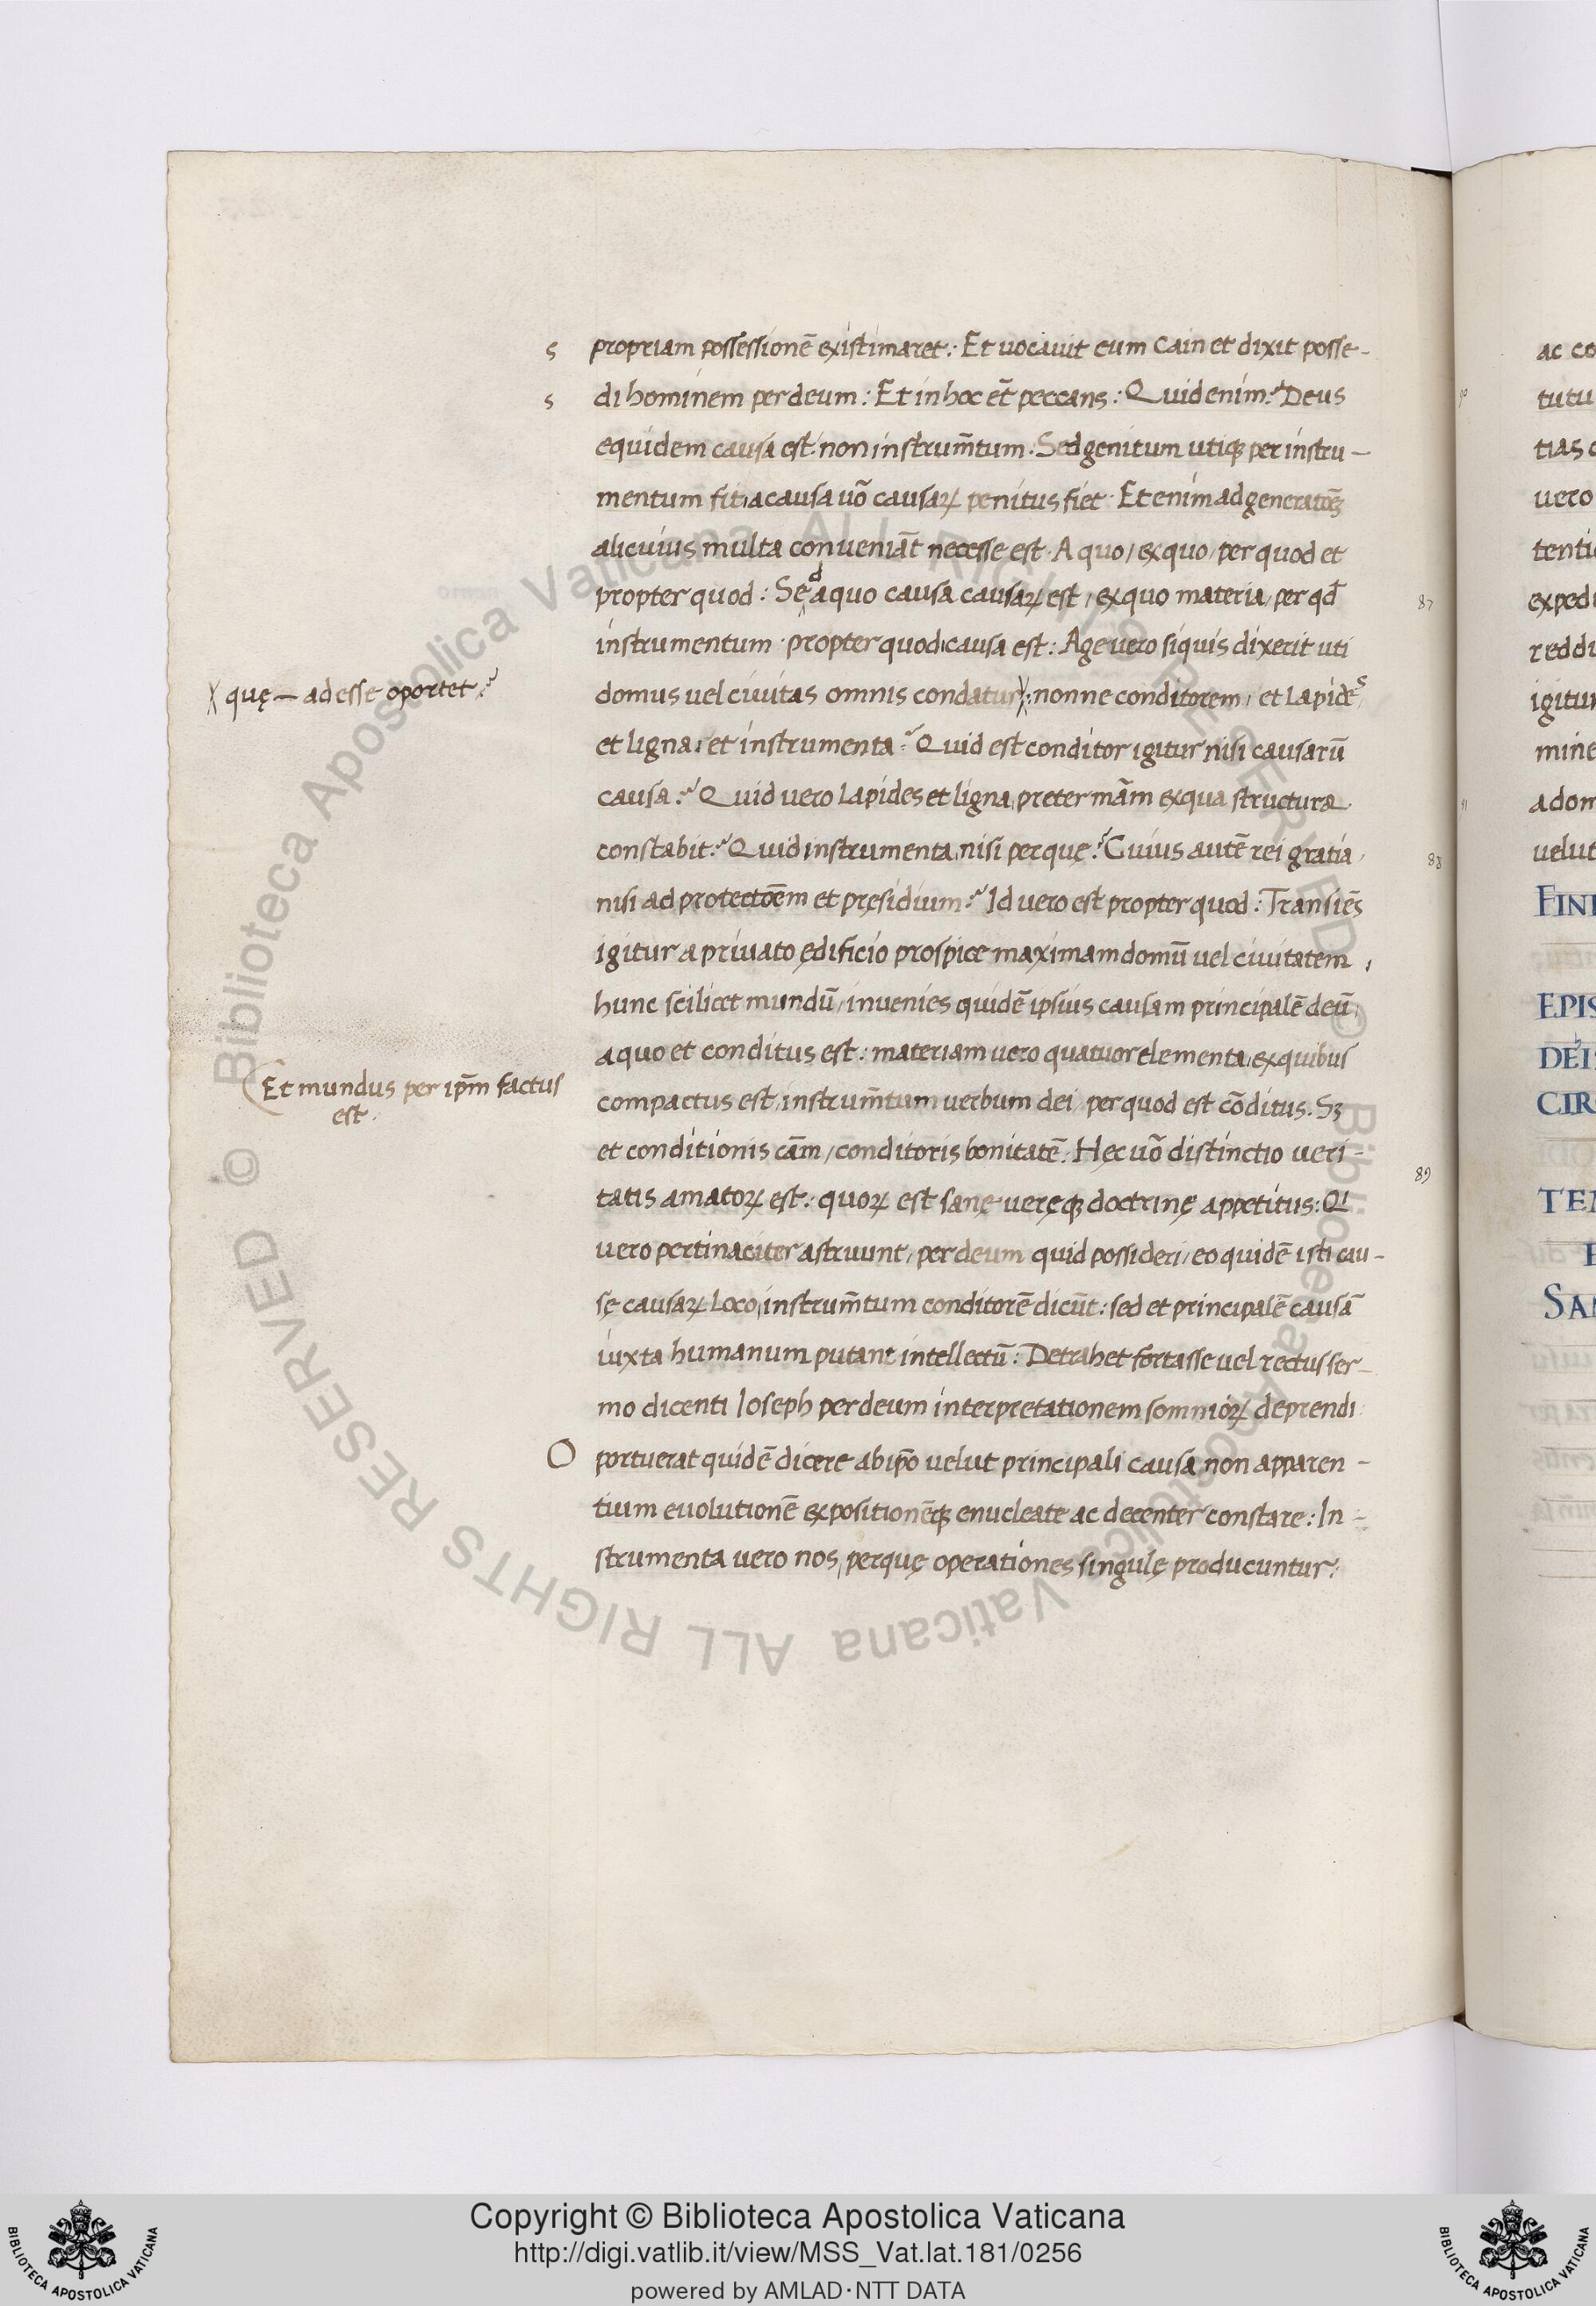 propriam possessionē existimaret: Et uocauit eum Cain et dixit posse-
di hominem per deum: Et in hoc et̄ peccans: Quid enim? Deus
equidem causa est: non instrum̄tum. Sed genitum utiqȝ per instru-
mentum fit, a causa uō causaꝝ penitus fiet. Et enim ad generatōēȝ
alicuius multa conueniāt necesse est. A quo, ex quo, per quod et
propter quod: Sed a quo causa causaꝝ est, ex quo materia, per qd̄
instrumentum. propter quod, causa est: Age uero siquis dixerit uti
domus uel ciuitas omnis condatur: nonne conditorem, et lapides,
et ligna, et instrumenta? Quid est conditor igitur nisi causarū
causa? Quid uero lapides et ligna, preter mām ex qua structura
constabit? Quid instrumenta, nisi per quę? Cuius autē rei gratia,
nisi ad protectōem et pręsidium? Id uero est propter quod: Transiēs
igitur a priuato ędificio prospice maximam domū uel ciuitatem,
hunc scilicet mundū, inuenies quidē ipsius causam principalē deū,
a quo et conditus est: materiam uero quatuor elementa, ex quibus
compactus est, instrum̄tum uerbum dei, per quod est cōditus. Sȝ
et conditionis cām, conditoris bonitatē. Hęc uō distinctio ueri-
tatis amatoꝝ est: quoꝝ est sanę uerę qȝ doctrinę appetitus: Qi
uero pertinaciter astruunt, per deum quid possideri, eo quidē isti cau-
sę causaꝝ loco, instrum̄tum conditorē dicūt: sed et principalē causā
iuxta humanum putant intellectū: Detrahet fortasse uel rectus ser-
mo dicenti Ioseph per deum interpretationem somnioꝝ deprendi:
O portuerat quidē dicere ab ipō uelut principali causa non apparen-
tium euolutionē expositionēqȝ enucleate ac decenter constare: In-
strumenta uero nos, per quę operationes singulę producuntur:
s
s
quę — adesse oportet?
Et mundus per ip̄m factus
est:
87
88
89
ac co
tutu
tias
uero
tenti
exped
reddi
igitur
mine
a dom
uelut
FINI
EPIS
DEI
CIR
TEM
SAN
© Biblioteca Apostolica Vaticana ALL RIGHTS RESERVED © Biblioteca Apostolica Vaticana ALL RIGHTS RESERVED
Copyright © Biblioteca Apostolica Vaticana
http://digi.vatlib.it/view/MSS_Vat.lat.181/0256
powered by AMLAD·NTT DATA
BIBLIOTECA APOSTOLICA VATICANA
BIBLIOTECA APOSTOLICA VATICANA